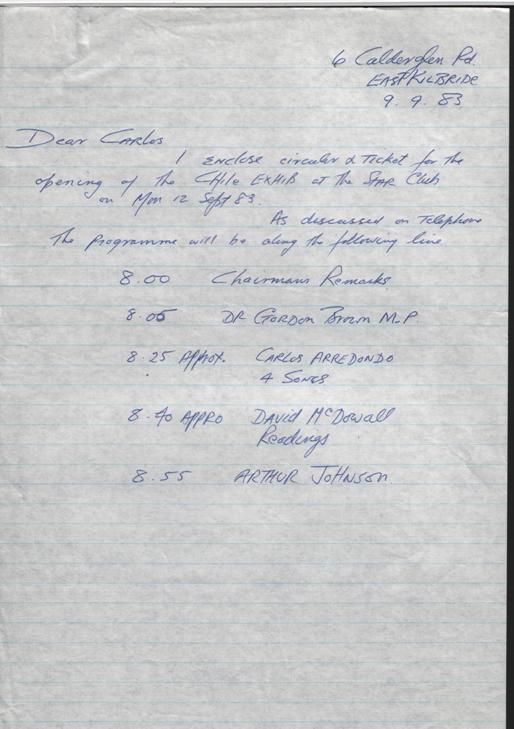 6 Calderglen Rd.
EAST KILBRIDE
9. 9. 83
Dear CARLOS
I ENCLOSE circular & Ticket for the
opening of the CHILE EXHIB at the STAR Club
on Mon 12 Sept 83.
As discussed on Telephone
The programme will be along the following line
8.00 Chairmans Remarks
8.05 DR GORDON Brown M.P
8.25 Approx. CARLOS ARREDONDO
4 SONGS
8.40 APPRO David McDowall
Readings
8.55 ARTHUR JOHNSON.